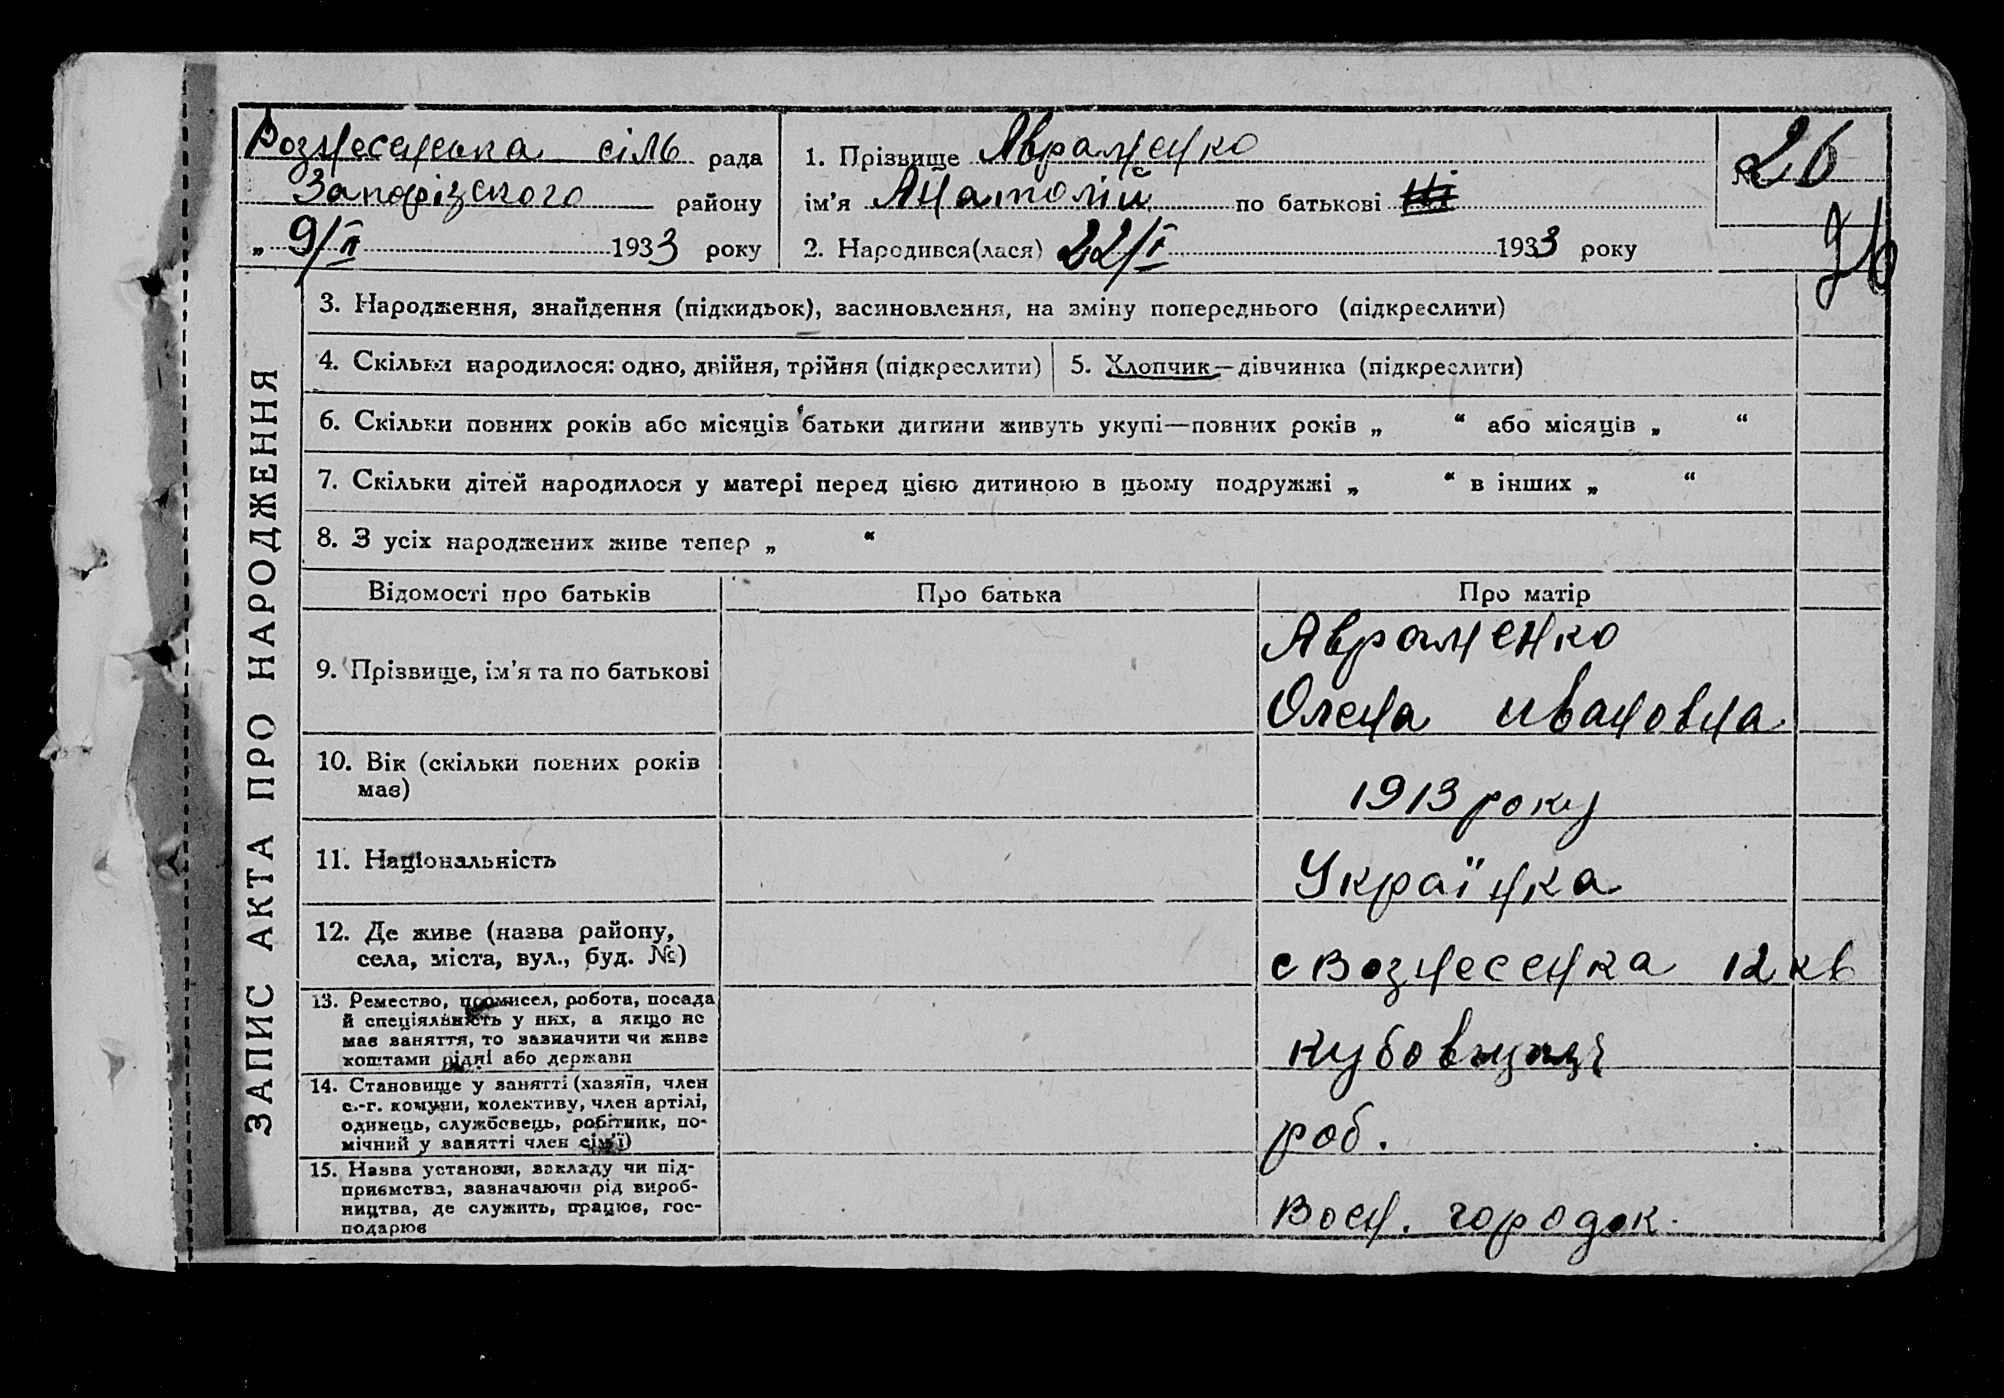 Вознесенська сіль рада
Запорізского району
„ 9/II 1933 року
1. Прізвище Авраменко
ім'я Анатолій по батькові
2. Народився(лася) 22/I 1933 року
№ 26
ЗАПИС АКТА ПРО НАРОДЖЕННЯ
3. Народження, знайдення (підкидьок), засиновлення, на зміну попереднього (підкреслити)
4. Скільки народилося: одно, двійня, трійня (підкреслити)
5. Хлопчик—дівчинка (підкреслити)
6. Скільки повних років або місяців батьки дитини живуть укупі—повних років „ “ або місяців „ “
7. Скільки дітей народилося у матері перед цією дитиною в цьому подружжі „ “ в інших „ “
8. З усіх народжених живе тепер „ “
Відомості про батьків Про батька Про матір
9. Прізвище, ім'я та по батькові
Авраменко
Олена ивановна
10. Вік (скільки повних років
має)
1913 року
11. Національність
Українка
12. Де живе (назва району,
села, міста, вул., буд. №)
с Вознесенка 12 кв
13. Ремество, промисел, робота, посада
й спеціяльність у них, а якщо не
має заняття, то зазначити чи живе
коштами рідні або держави
14. Становище у занятті (хазяїн, член
с.-г. комуни, колективу, член артілі,
одинець, службовець, робітник, по-
мічний у занятті член сім'ї)
роб.
15. Назва установи, закладу чи під-
приємства, зазначаючи рід вироб-
ництва, де служить, працює, гос-
подарює
Воен. городок.